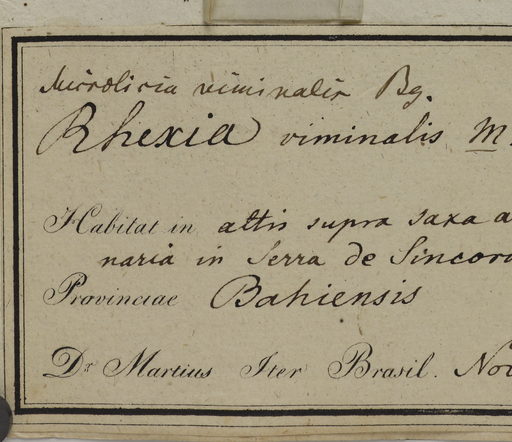 Microlicia viminalis Bg.
Rhexia viminalis M.
Habitat in altis supra saxa a
naria in Serra de Sincora
Provinciae Bahiensis
Dr. Martius Iter Brasil. Nov